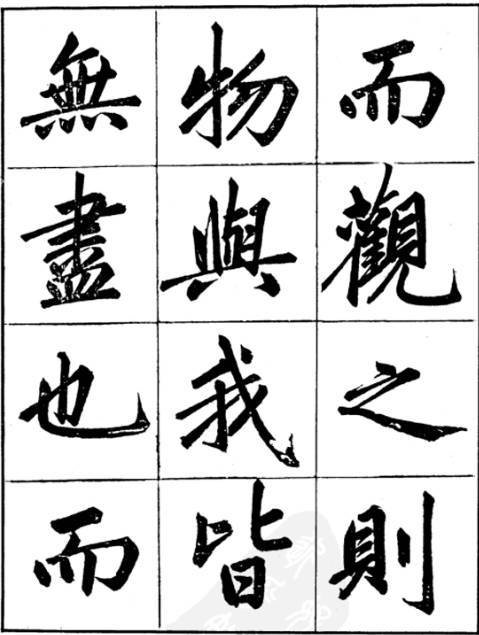 而觀之則
物與我皆
無盡也而